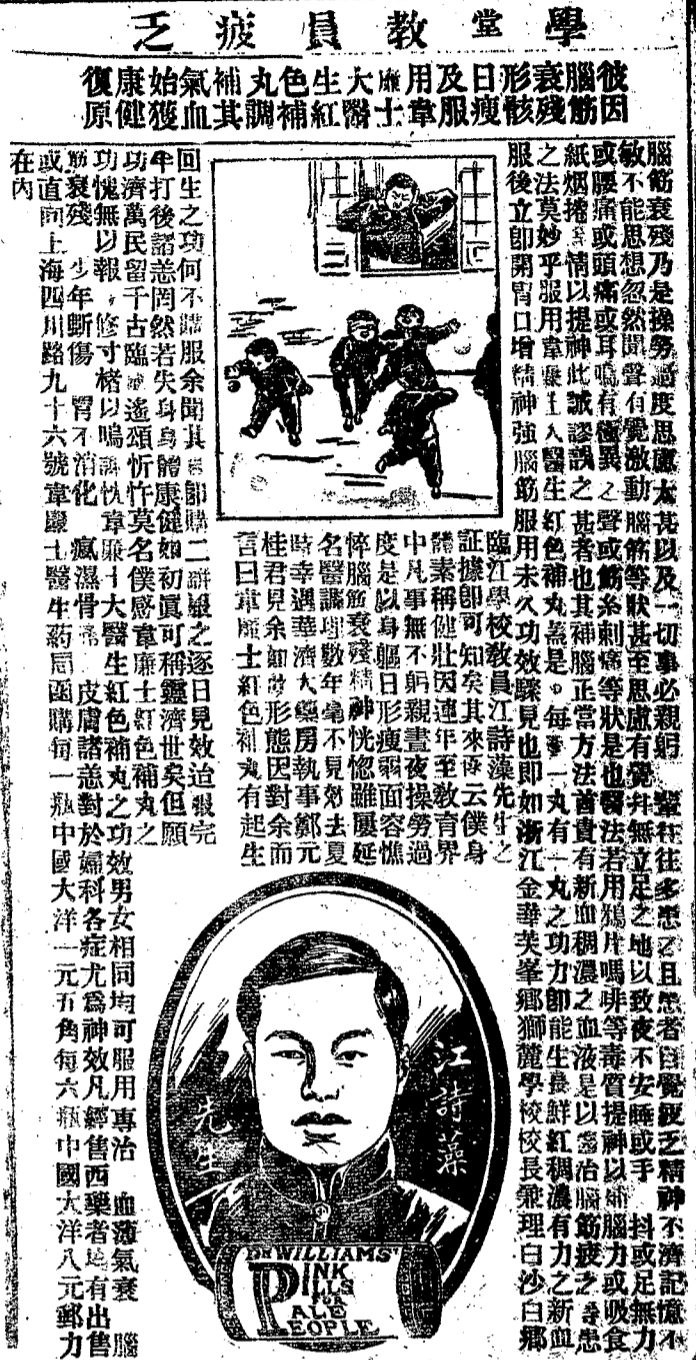 學堂教員疲乏
彼因腦筋衰殘形骸日瘦及服用韋廉士大醫生紅色補丸調補其氣血始獲康健復原
腦筋衰殘乃是操勞過度思慮太甚以及一切事必親躬 輩往往多患之且患者自覺疲乏精神不濟記憶不
敏不能思想忽然聞聲有覺激動腦筋等狀甚至思慮有 無立足之地以致夜不安睡或手 抖或足無力
或腰痛或頭痛或耳鳴有極異之聲或筋絡刺痛等狀是也醫法若用鴉片嗎啡等毒質提神以補腦力或吸食
紙烟捲 情以提神此誠謬誤之甚者也其補腦正當方法首貴有新血稠濃之血液是以 治腦筋疲乏等患
之法莫妙乎服用韋廉士大醫生紅色補丸蓋是 每 一丸有一丸之功力即能生 鮮紅稠濃有力之新血
服後立即開胃口增精神強腦筋服用未久功效驟見也即如浙江金華芙峯鄉獅麓學校校長兼理白沙白鄉
臨江學校教員江詩藻先生之
証據即可知矣其來函云僕身
體素稱健壯因連年至教育界
中凡事無不躬親晝夜操勞過
度是以身軀日形瘦弱面容憔
悴腦筋衰殘精神恍惚雖屢延
名醫調理數年毫不見效去夏
時幸遇華濟大藥房執事鄭元
桂君見余如 形態因對余而
言曰韋廉士紅色補丸有起生
回生之功何不購服余聞其 即購二瓶 之逐日見效迨 完
半打後諸恙罔然若失身體康健如初眞可稱靈濟世矣但願
功濟萬民留千古臨 遙頌忻忭莫名僕感韋廉士紅色補丸之
功愧無以報 修寸楮以鳴謝忱韋廉士大醫生紅色補丸之功效男女相同均可服用專治 血薄氣衰 腦
筋衰殘 少年斲傷 胃不消化 瘋濕骨痛 皮膚諸恙對於婦科各症尤爲神效凡經售西藥者均有出售
或直向上海四川路九十六號韋廉士醫生药局函購每一瓶中國大洋一元五角每六瓶中國大洋八元郵力
在內
江詩藻
先生
DR WILLIAMS'
PINK
PILLS
FOR
PALE
PEOPLE